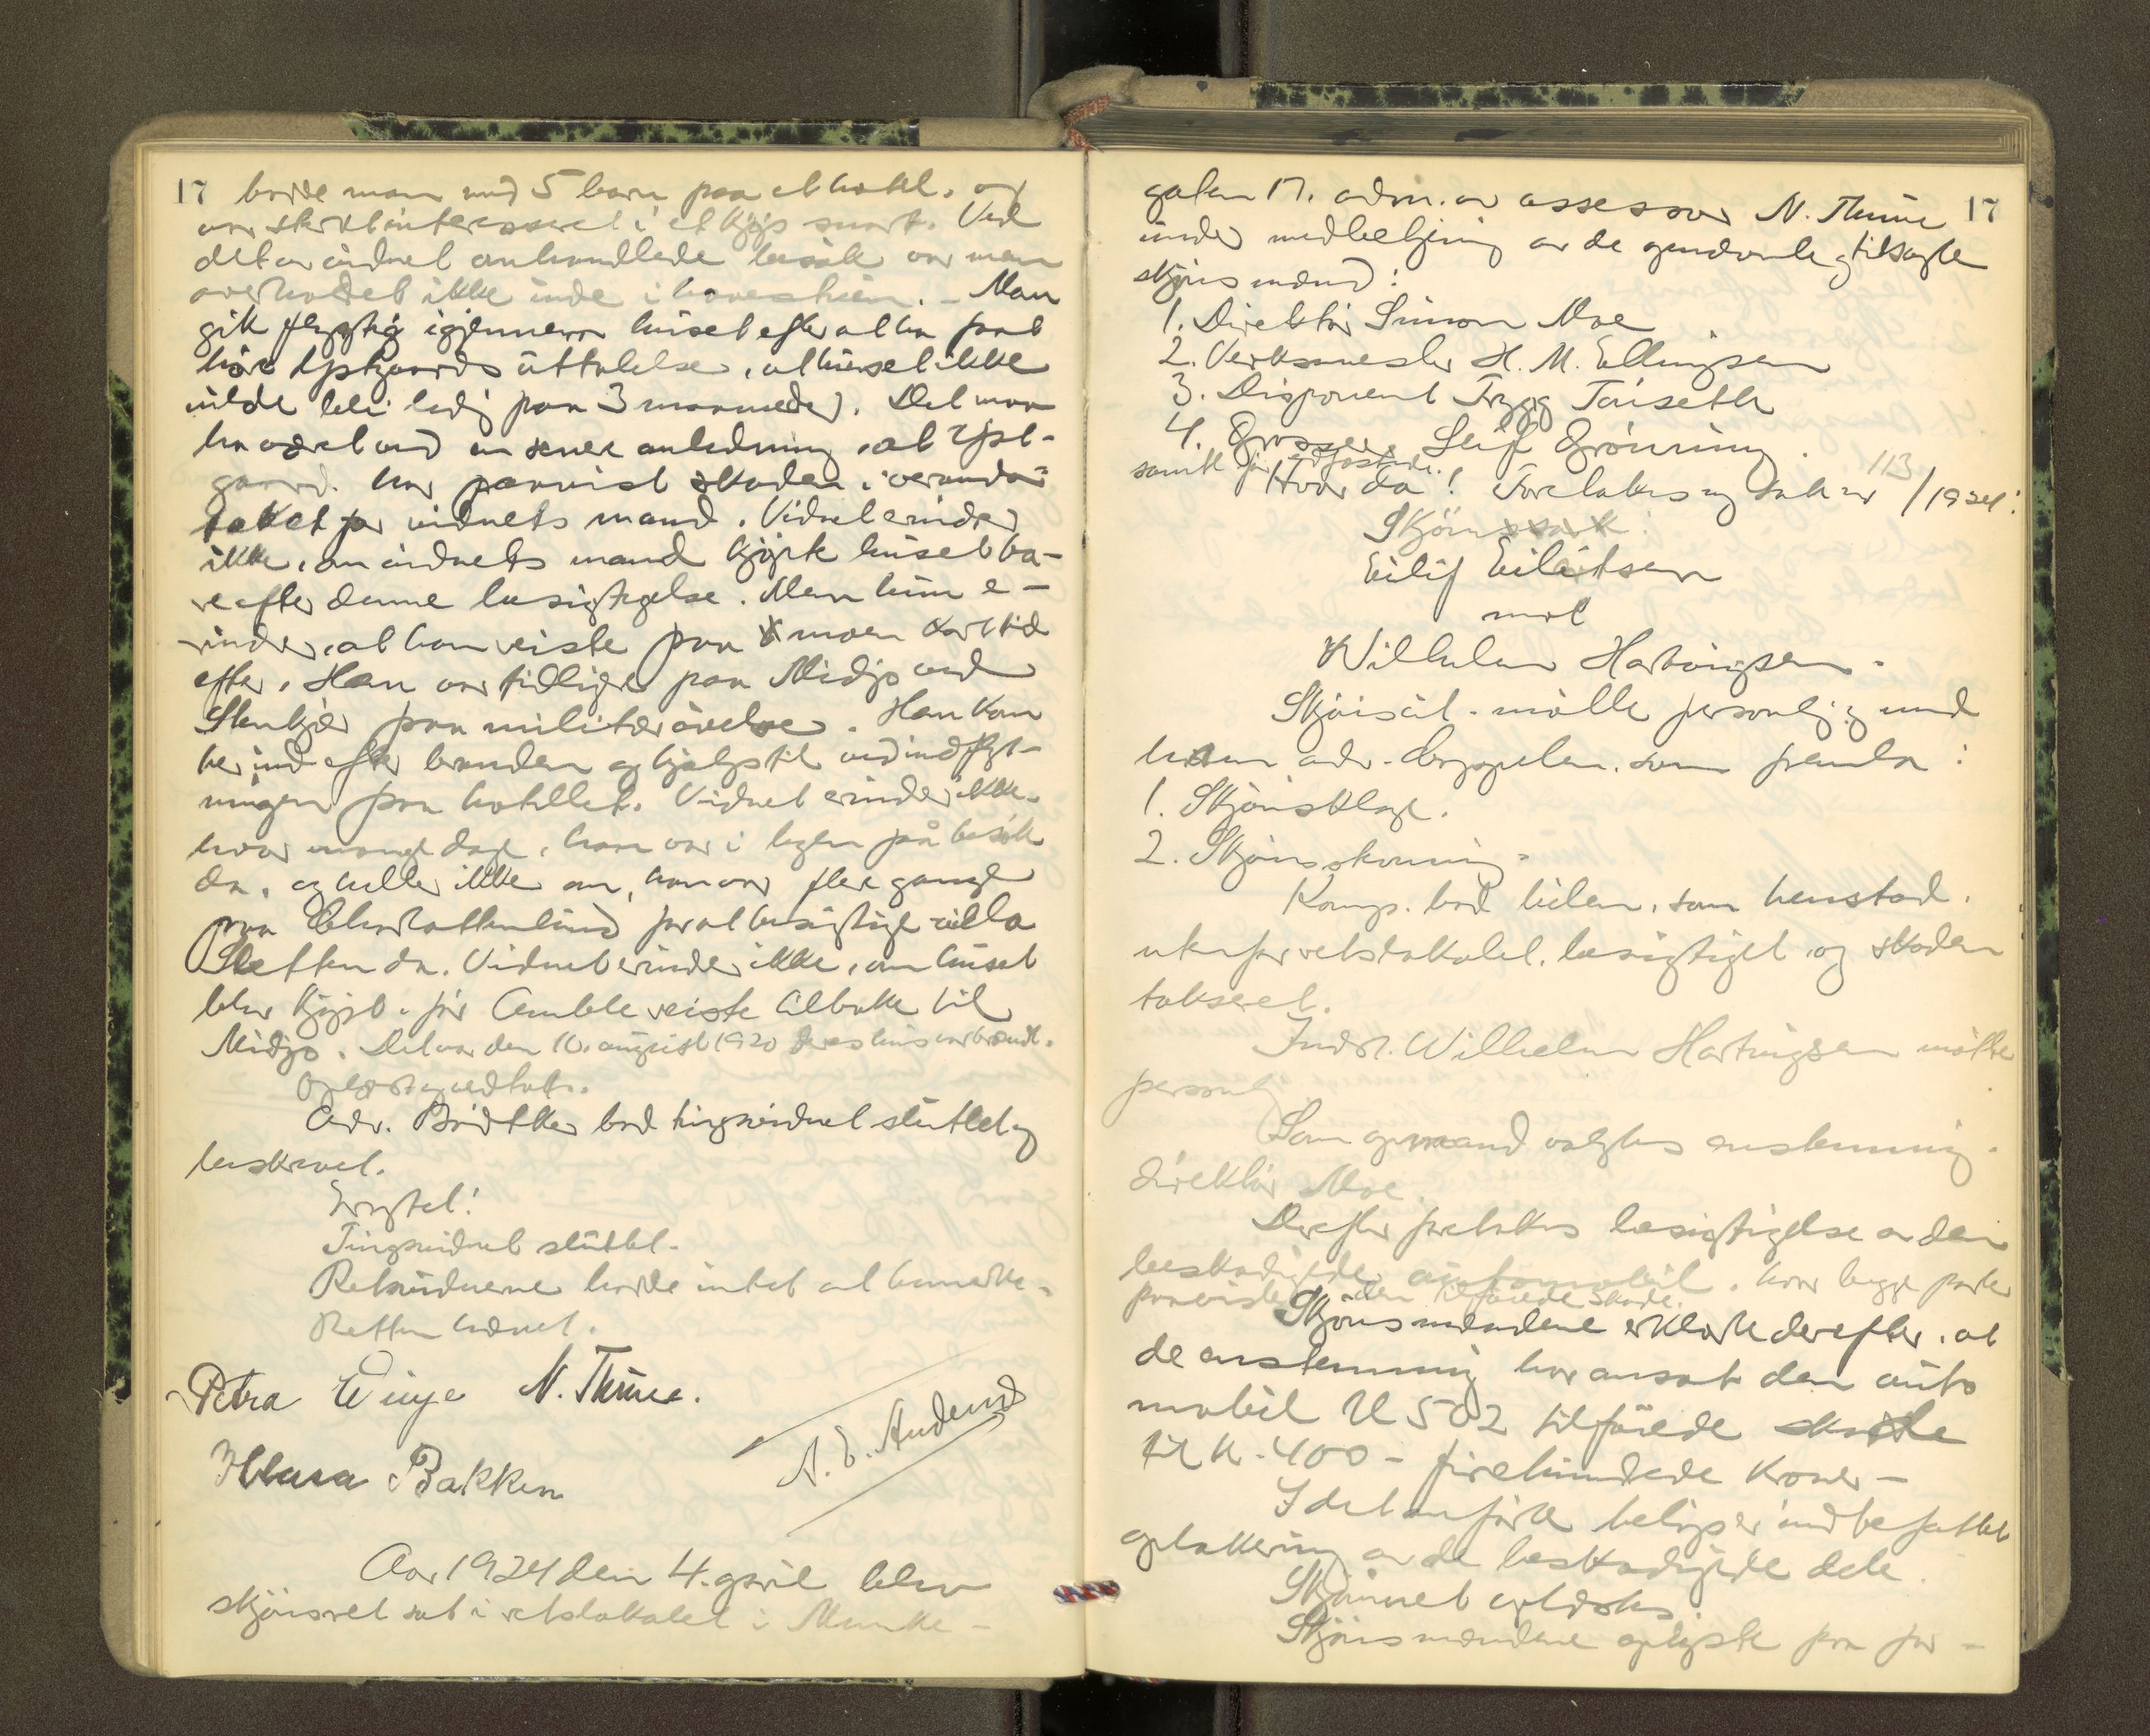 17
bodde man med 5 barn paa et hotel, og
var sterkt interesseret i et kjøp snart. Ved
det av vidnet omhandlede besøk var man
overhodet ikke inde i haveskuen. - Man
gik flygtig igjennem huset efter at ha faat
høre Rystgaards uttalelse, at huset ikke
vilde bli ledig paa 3 maaneder. Det maa
ha været ved en senere anledning, at Ryst-
gaard har paavist skaden i veranda-
taket for vidnets mand. Vidnet erindrer
ikke, om vidnets mand kjøpte huset ba-
re efter denne besigtigelse. Men hun e-
rindrer, at han reiste paa moen kort tid
efter. Han var tidligere paa Midjo ved
Stenkjær paa militærøvelse. Han kom
her ind efter branden og hjalp til ved indflyt-
ningen paa hotellet. Vidnet erindrer ikke
hvor mange dage, han var i byen på besøk
da, og heller ikke om, han var flere gange
paa Charlottenlund for at besigtige villa
Sletten da. Vidnet erindrer ikke, om huset
blev kjøpt, før Amble reiste tilbake til
Midjo. Det var den 10. august 1920 deres hus var brændt.
Oplæst og vedtat.
Adv. Brødtker bad tingsvidnet sluttet og
beskrevet.
Eragtet!
Tingsvidnet sluttet.
Retsvidnerne hadde intet at bemerke.
Retten hævet.
Petra Winje N. Thune.
Klara Bakken
A. E. Anderud
Aar 1924 den 4. april blev
skjønsret sat i retslokalet i Munke-
17
gaten 17. adm. av assessor N. Thune
under medbetjening av de opnævnte og tilsagte
skjønsmænd:
1. Direktør Simon Moe
2. Verksmester H. M. Ellingsen
3. Disponent Trygg Tønseth
4. Grosserer Leif Grønning.
samtl. før edfæstede.
Hvor da! Foretokes sak nr 113/1924:
Skjønssak:
Eilif Eilertsen
mot
Wilhelm Hartvigsen.
Skjønscit. møtte personlig og med
ham adv. som fremla:
1. Skjønsklage.
2. Skjønsstevning.
Komp. bad bilen, som henstod
utenfor retslokalet, besigtiget og skaden
takseret.
Indst. Wilhelm Hartvigsen møtte
personlig.
Som opmand valgtes enstemmig
direktør Moe.
Derefter foretokes besigtigelse av den
beskadigede automobil, hvor begge parter
paaviste den tilføiede skade.
Skjønsmændene erklærte derefter, at
de enstemmig har ansat den auto
mobil U 502 tilføiede skade
til kr. 400 - firehundrede kroner -
I det anførte beløp er indbefattet
oplakering av de beskadigede dele.
Skjønnet oplæstes.
Skjønsmændene oplyste paa for-